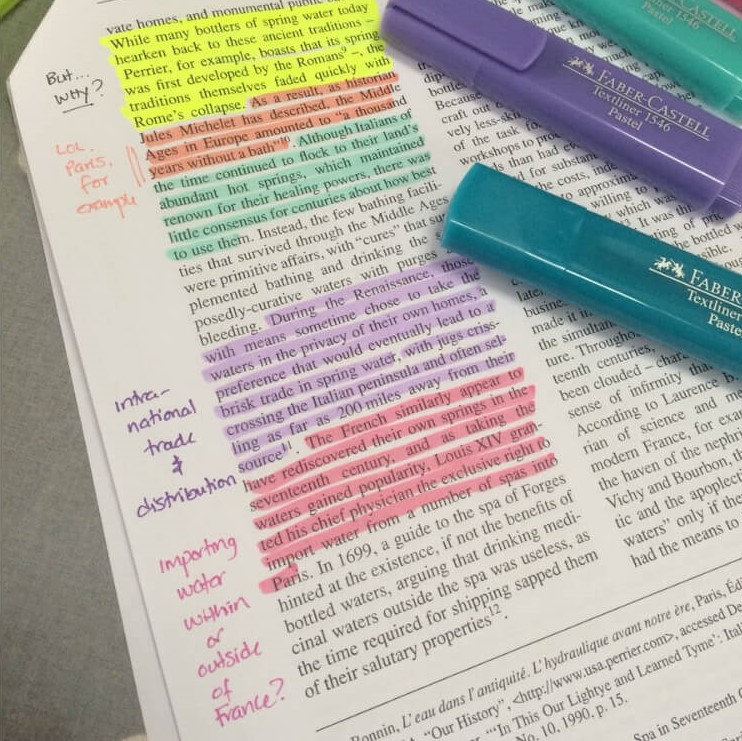 vate homes, and monumental public
While many bottlers of spring water today
hearken back to these ancient traditions –
Perrier, for example, boasts that its spring
was first developed by the Romans⁹ –, the
traditions themselves faded quickly with
Rome's collapse. As a result, as historian
Jules Michelet has described, the Middle
Ages in Europe amounted to "a thousand
years without a bath"¹⁰. Although Italians of
the time continued to flock to their land's
abundant hot springs, which maintained
renown for their healing powers, there was
little consensus for centuries about how best
to use them. Instead, the few bathing facili-
ties that survived through the Middle Ages
were primitive affairs, with "cures" that sup
plemented bathing and drinking the
posedly-curative waters with purges
bleeding. During the Renaissance, those
with means sometime chose to take the
waters in the privacy of their own homes, a
preference that would eventually lead to a
brisk trade in spring water, with jugs criss-
crossing the Italian peninsula and often sel-
ling as far as 200 miles away from their
source¹¹. The French similarly appear to
have rediscovered their own springs in the
seventeenth century, and as taking the
waters gained popularity, Louis XIV gran-
ted his chief physician the exclusive right to
import water from a number of spas into
Paris. In 1699, a guide to the spa of Forges
hinted at the existence, if not the benefits of
bottled waters, arguing that drinking medi-
cinal waters outside the spa was useless, as
the time required for shipping sapped them
of their salutary properties¹².
But...
Why?
LOL.
Paris,
for
example
Intra-
national
trade
&
distribution
Importing
water
within
or
outside
of
France?
Because
craft out
vely less-skil
of the task
workshops to pro
ds than had ev
for substan
the costs, ind
to approxima
willing to
which was
. It was th
ting of pric
the bottled w
ssible.
late
busine
made it i
the simultan
ture. Througho
teenth centuries,
been clouded – chara
sense of infirmity tha
According to Laurence
rian of science and me
modern France, for exa
the haven of the nephri
Vichy and Bourbon, th
tic and the apoplecti
waters" only if the
had the means to
Bonnin, L'eau dans l'antiquité. L'hydraulique avant notre ère, Paris, Éd
"Our History", <http://www.usa.perrier.com>, accessed De
"'In This Our Lightye and Learned Tyme': Itali
No. 10, 1990, p. 15.
Spa in Seventeenth C
FABER-CASTELL
Textliner 1546
Pastel
FABER-CASTELL
Textliner 1546
Pastel
FABER-
Textliner
Paste